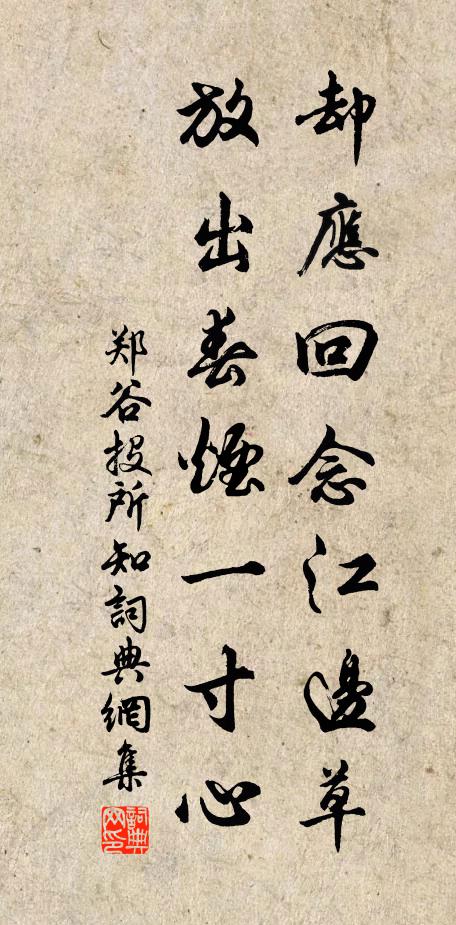 却應回念江邊草
放出春煙一寸心
郑谷投所知詞典網集
詞典
网印